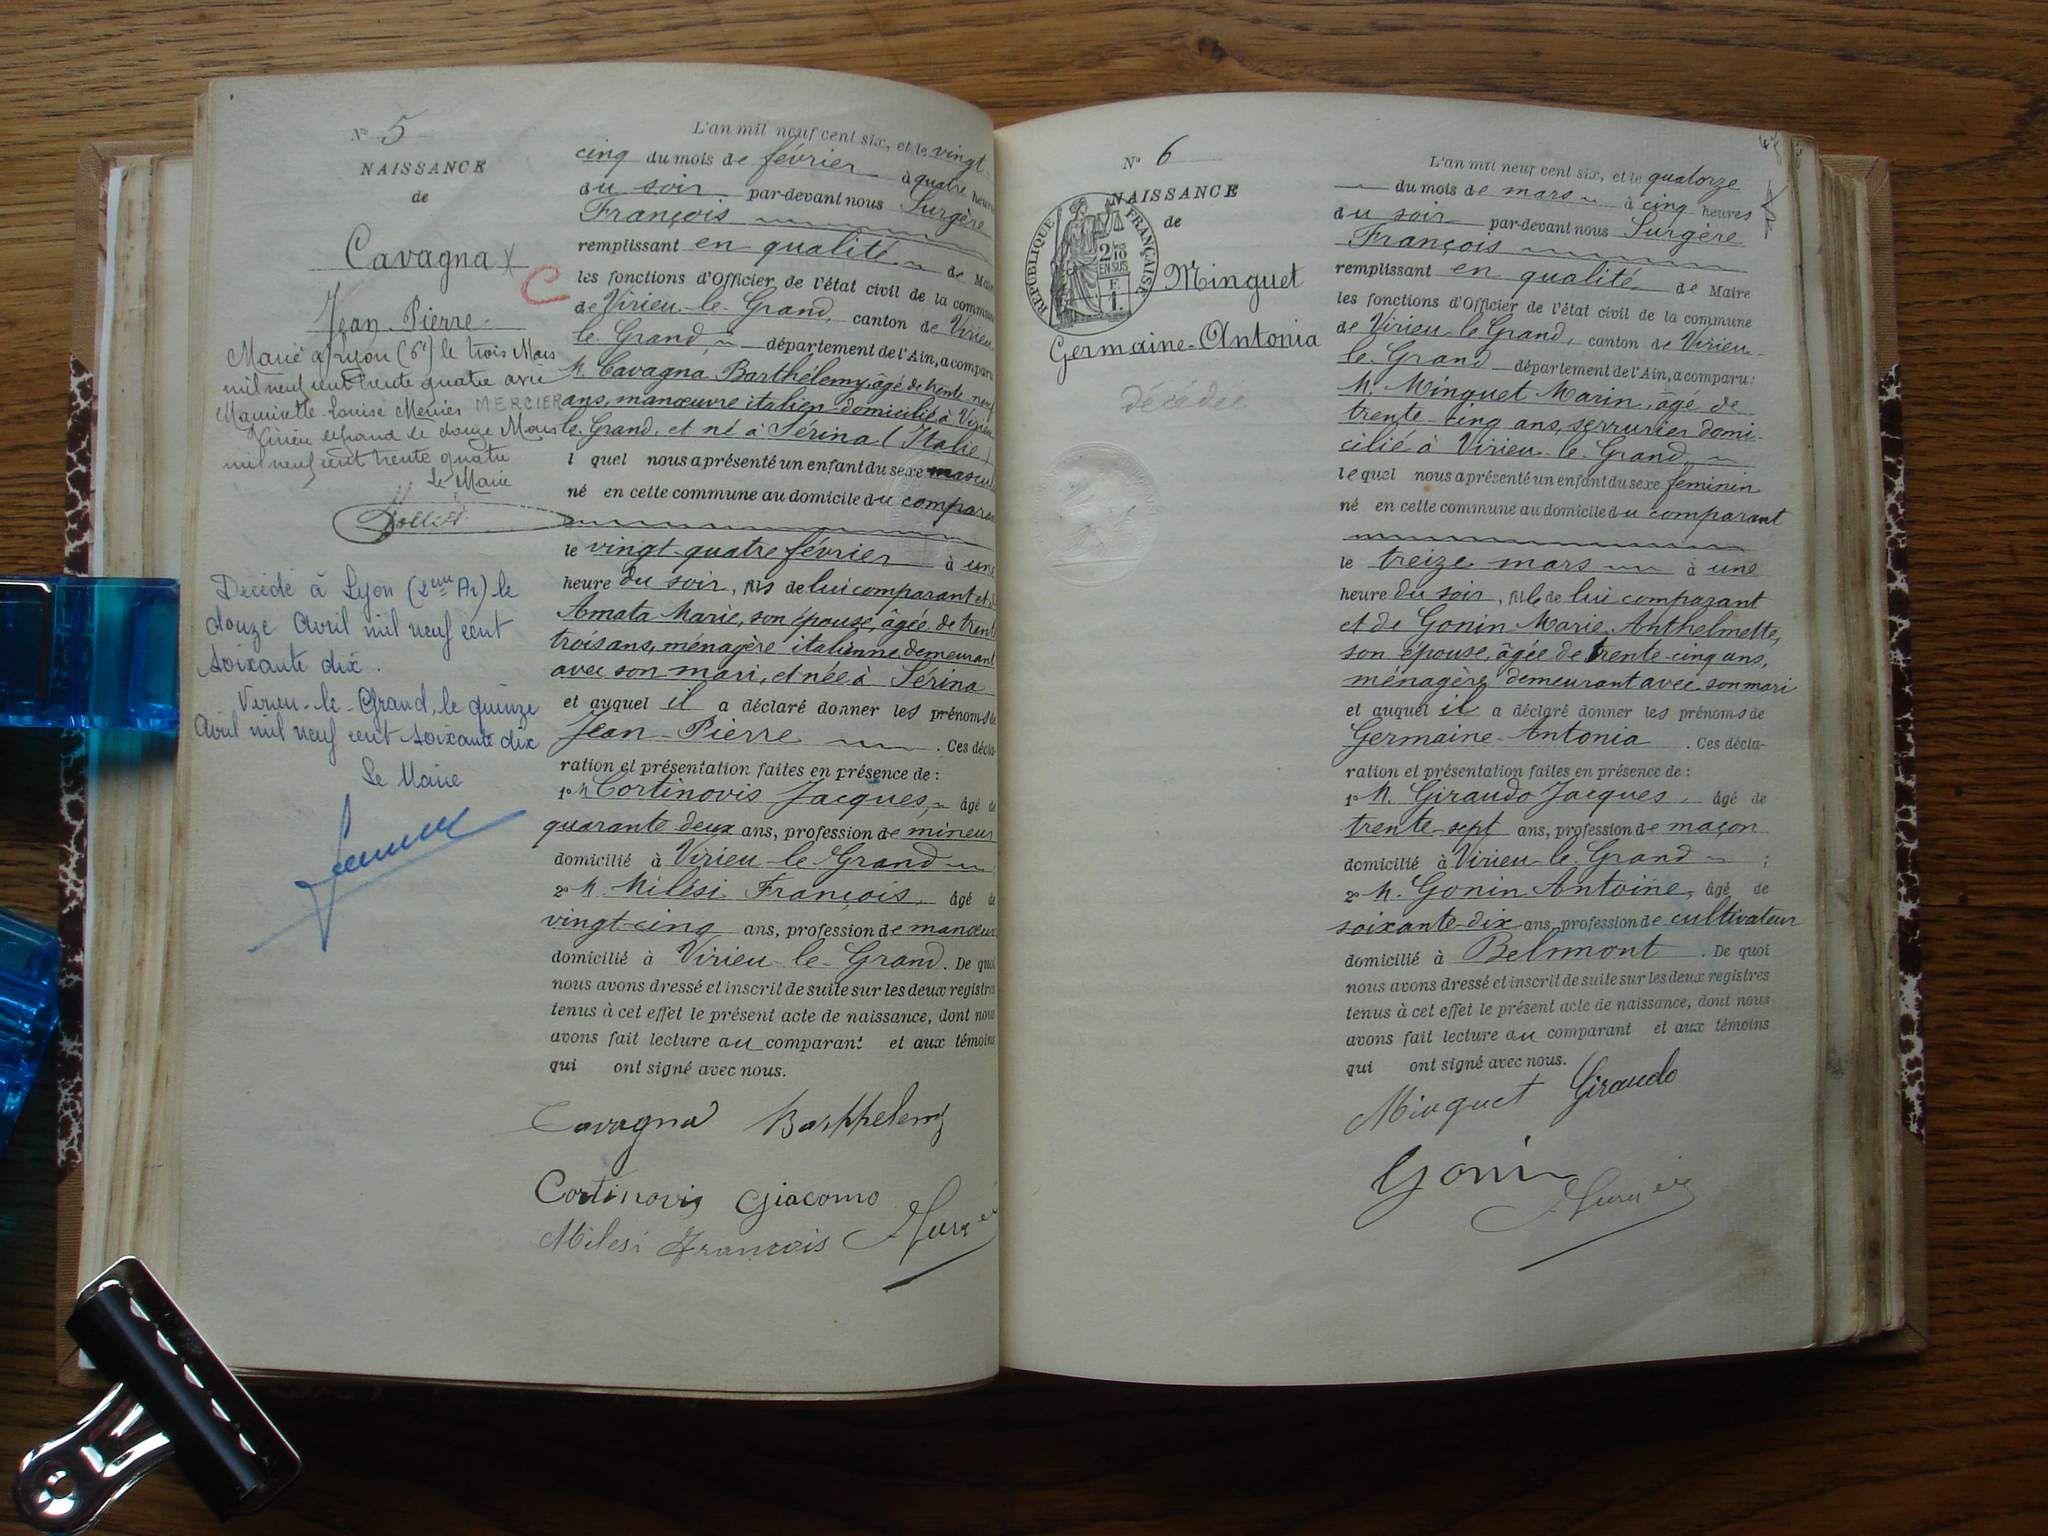 N° 5
NAISSANCE
de
Cavagna
Jean-Pierre
Marié à Lyon (6e) le trois Mars
mil neuf cent trente quatre avec
Mauricette Louise Mercier MERCIER
Virieu le Grand le douze Mars
mil neuf cent trente quatre
Le Maire
Décédé à Lyon (2ème Ar) le
douze Avril mil neuf cent
soixante dix.
Virieu-le-Grand, le quinze
Avril mil neuf cent soixante dix
Le Maire
L'an mil neuf cent six, et le vingt
cinq du mois de février à quatre heures
du soir par-devant nous Surgère
François
remplissant en qualité de Maire
les fonctions d'Officier de l'état civil de la commune
de Virieu-le-Grand, canton de Virieu-
le-Grand, département de l'Ain, a comparu:
M. Cavagna Barthélemy, âgé de trente-neuf
ans, manœuvre italien domicilié à Virieu
le-Grand, et né à Sérina (Italie)
lequel nous a présenté un enfant du sexe mascul
né en cette commune au domicile du comparan
le vingt-quatre février à une
heure du soir, fils de lui comparant et d
Amata Marie, son épouse, âgée de trent
trois ans, ménagère italienne demeurant
avec son mari, et née à Sérina
et auquel il a déclaré donner les prénoms de
Jean-Pierre. Ces décla-
ration et présentation faites en présence de:
1° M. Cortinovis Jacques, âgé de
quarante deux ans, profession de mineur
domicilié à Virieu-le-Grand;
2° M. Milési François, âgé de
vingt-cinq ans, profession de manœuv
domicilié à Virieu-le-Grand. De quoi
nous avons dressé et inscrit de suite sur les deux registres
tenus à cet effet le présent acte de naissance, dont nous
avons fait lecture au comparant et aux témoins
qui ont signé avec nous.
Cavagna Barthelemy
Cortinovis Giacomo
Milesi François Surgère
N° 6
NAISSANCE
de
RÉPUBLIQUE FRANÇAISE
2/10 EN SUS
Minguet
Germaine-Antonia
décédée
L'an mil neuf cent six, et le quatorze
du mois de mars à cinq heures
du soir par-devant nous Surgère
François
remplissant en qualité de Maire
les fonctions d'Officier de l'état civil de la commune
de Virieu-le-Grand, canton de Virieu-
le-Grand département de l'Ain, a comparu:
M. Minguet Marin, âgé de
trente-cinq ans, serrurier domi-
cilié à Virieu-le-Grand,
lequel nous a présenté un enfant du sexe féminin
né en cette commune au domicile du comparant
le treize mars à une
heure du soir, fille de lui comparant
et de Gonin Marie Anthelmette,
son épouse, âgée de trente-cinq ans,
ménagère demeurant avec son mari
et auquel il a déclaré donner les prénoms de
Germaine-Antonia. Ces décla-
ration et présentation faites en présence de:
1° M. Giraudo Jacques, âgé de
trente-sept ans, profession de maçon
domicilié à Virieu-le-Grand;
2° M. Gonin Antoine, âgé de
soixante-dix ans, profession de cultivateur
domicilié à Belmont. De quoi
nous avons dressé et inscrit de suite sur les deux registres
tenus à cet effet le présent acte de naissance, dont nous
avons fait lecture au comparant et aux témoins
qui ont signé avec nous.
Minguet Giraudo
Gonin
Surgère